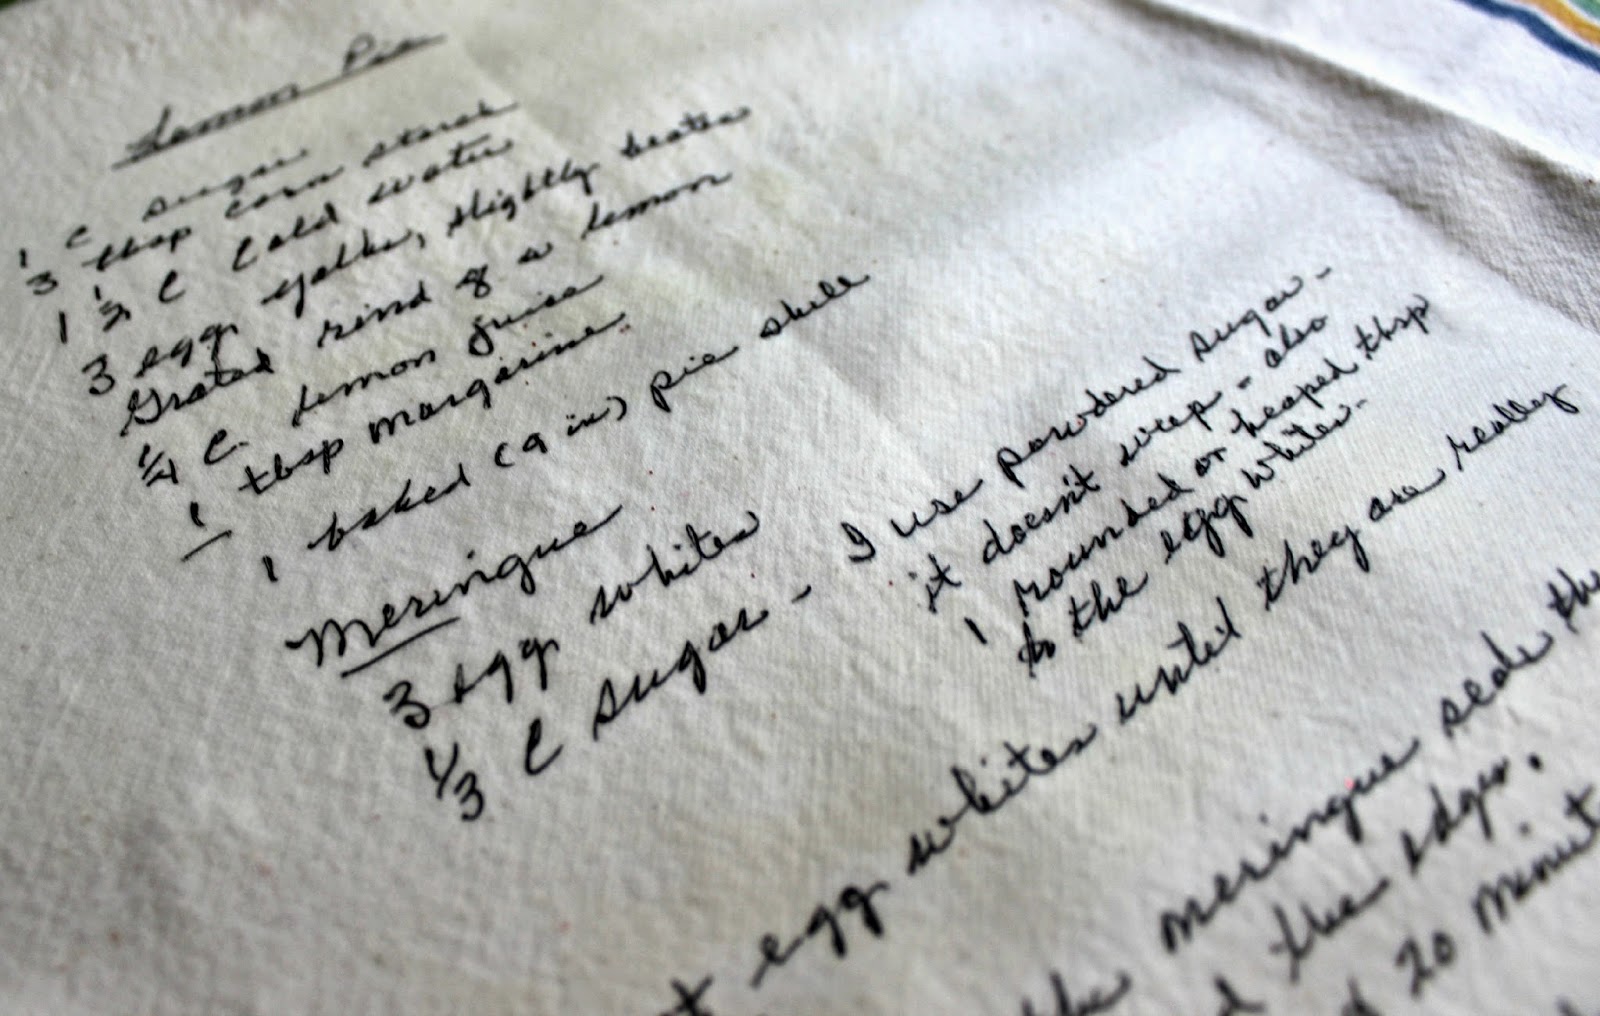 Lemon Pie
1 c sugar
3 tbsp corn starch
1 1/2 c cold water
3 egg yolks, slightly beaten
Grated rind of a lemon
1/4 c. lemon juice
1 tbsp margarine
1 baked (9 in) pie shell
Meringue
3 egg whites
1/3 c sugar - I use powdered sugar -
it doesn't weep - also
1 rounded or heaped tbsp
to the egg whites.
egg whites until they are really
the meringue seals the
the edges.
20 minut